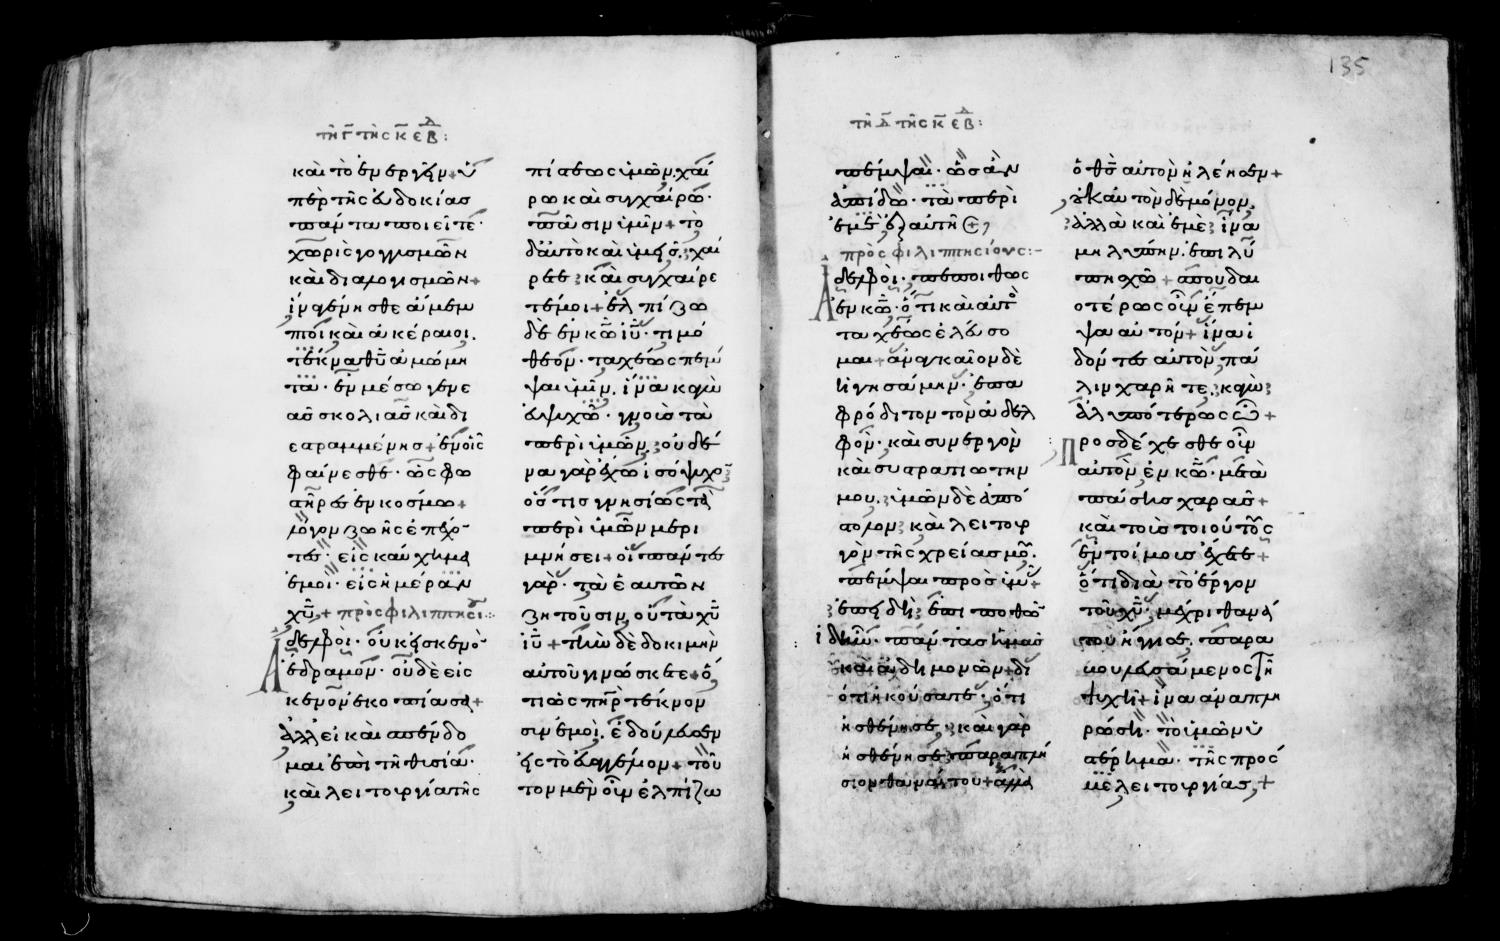 τῆ γ̄ τῆς κ̄ε̄ ἑβδ:
καὶ τὸ ἐνεργεῖν· ὑ
πὲρ τῆς εὐδοκίας
πάντα ποιεῖτε·
χωρὶς γογγισμῶν
καὶ διαλογισμῶν+
ἵνα γένησθε ἄμεμ
πτοι καὶ ἀκέραιοι.
τέκνα θ̅υ̅ ἀμώμη
τα· ἐν μέσω γενε
ᾶς σκολιᾶς καὶ δι
εστραμμένης+ ἐν οἷς
φαίνεσθε· ὡς φω
στῆρες ἐν κόσμω+
λόγον ζωῆς ἐπέχο̅
τες· εἰς καύχημα
ἐμοὶ· εἰς ἡμέραν
χ̅υ̅+ πρὸς φιλιππησί:
Ἀδελφοὶ· οὐκ εἰς κενὸ̅
ἔδραμον· οὐδὲ εἰς
κενὸν ἐκοπίασα+
ἀλλ' εἰ καὶ σπένδο
μαι ἐπὶ τῆ θισία·
καὶ λειτουργία τῆς
πίστεως ὑμῶν. χαί
ρω καὶ συγχαίρω·
πᾶσιν ὑμῖν+ τὸ
δ' αὐτὸ καὶ ὑμεῖς. χαί
ρετε· καὶ συγχαίρε
τέ μοι+ ἐλπίζω
δὲ ἐν κ̅ω̅ ι̅υ̅· τιμό
θεον· ταχέως πέμ
ψαι ὑμῖν. ἵνα κἀγὼ
εὐψυχῶ· γνοὺς τὰ
περὶ ὑμῶν. οὐδέ
να γὰρ ἔχω ἰσόψυχο̅
ὅστις γνησίως τὰ
περὶ ὑμῶν μερι
μνήσει+ οἱ πάντες
γὰρ· τὰ ἑαυτῶν
ζητοῦσιν, οὐ τὰ χ̅υ̅
ι̅υ̅+ τὴν δὲ δοκιμὴν
αὐτοῦ γινώσκετε+ ὅ
τι ὡς π̅ρ̅ὶ τέκνον
σὺν ἐμοὶ. ἐδούλευσεν
εἰς τὸ εὐαγγέλιον+ τοῦ
τον μὲν οὖν ἐλπίζω
135
τῆ δ̄ τῆς κ̄ε̄ ἑβδ:
πέμψαι· ὡς ἂν
ἀπίδω· τὰ περὶ
ἐμὲ ἐξαυτῆς+
πρὸς φιλιππησίους:
Ἀδελφοὶ· πέποιθα
ἐν κ̅ω̅· ὅτι καὶ αὐτὸς
ταχέως ἐλεύσο
μαι+ ἀναγκαῖον δὲ
ἡγησάμην· ἐπα
φρόδιτον τὸν ἀδελ
φὸν· καὶ συνεργὸν
καὶ συστρατιώτην
μου. ὑμῶν δὲ ἀπό
στολον· καὶ λειτουρ
γὸν τῆς χρείας μου.
πέμψαι πρὸς ὑμᾶς+
ἐπειδὴ ἐπιποθῶ̅
ἰδεῖν· πάντας ὑμᾶς
καὶ ἀδημονῶν+ δι
ότι ἠκούσατε· ὅτι
ἠσθένησε· καὶ γὰρ
ἠσθένησε παραπλη
σίον θανάτου+ ἀλλὰ
ὁ θ̅ς̅ αὐτὸν ἠλέησεν+
οὐκ αὐτὸν δὲ μόνον.
ἀλλὰ καὶ ἐμὲ· ἵνα
μὴ λύπην. ἐπὶ λύ
πη σχῶ+ σπουδαι
οτέρως οὖν ἔπεμ
ψα αὐτόν+ ἵνα ἰ
δόντες αὐτὸν πά
λιν χαρῆτε. κἀγὼ
ἀλυπότερος ὦ+
Προσδέχεσθε οὖν
αὐτὸν ἐν κ̅ω̅· μετὰ
πάσης χαρᾶς+
καὶ τοὺς τοιούτους
ἐντίμους ἔχετε+
ὅτι διὰ τὸ ἔργον
τοῦ χ̅υ̅· μέχρι θανά
του ἤγγισε. παρα
βουλευσάμενος τῆ
ψυχῆ+ ἵνα ἀναπλη
ρώση· τὸ ὑμῶν ὑ
στέρημα· τῆς πρός
με λειτουργίας,+